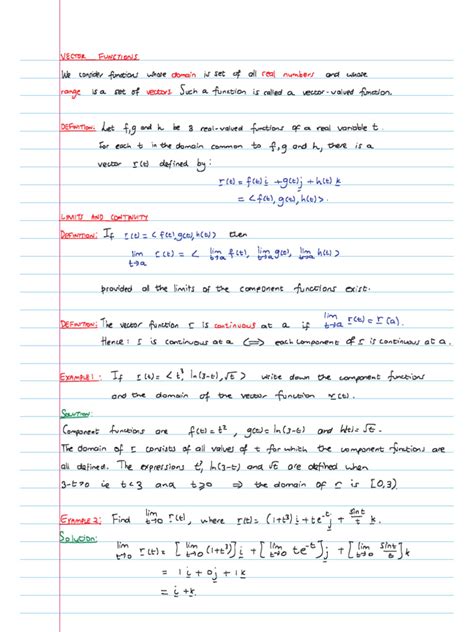 VECTOR FUNCTIONS
We consider functions whose domain is set of all real numbers and whose
range is a set of vectors. Such a function is called a vector-valued function.
DEFINITION: Let f, g and h be 3 real-valued functions of a real variable t.
For each t in the domain common to f, g and h, there is a
vector r(t) defined by:
r(t) = f(t)i + g(t)j + h(t)k
= <f(t), g(t), h(t)>.
LIMITS AND CONTINUITY
DEFINITION: If r(t) = <f(t), g(t), h(t)> then
lim t→a r(t) = < lim t→a f(t), lim t→a g(t), lim t→a h(t)>
provided all the limits of the component functions exist.
DEFINITION: The vector function r is continuous at a if lim t→a r(t) = r(a).
Hence: r is continuous at a ⟺ each component of r is continuous at a.
EXAMPLE 1: If r(t) = <t³, ln(3-t), √t> write down the component functions
and the domain of the vector function r(t).
SOLUTION:
Component functions are f(t) = t², g(t) = ln(3-t) and h(t) = √t.
The domain of r consists of all values of t for which the component functions are
all defined. The expressions t³, ln(3-t) and √t are defined when
3-t>0 ie t<3 and t≥0 ⇒ the domain of r is [0,3).
EXAMPLE 2: Find lim t→0 r(t), where r(t) = (1+t³)i + te⁻ᵗj + sint/t k.
Solution:
lim t→0 r(t) = [lim t→0 (1+t³)]i + [lim t→0 te⁻ᵗ]j + [lim t→0 sint/t]k
= 1i + 0j + 1k
= i + k.